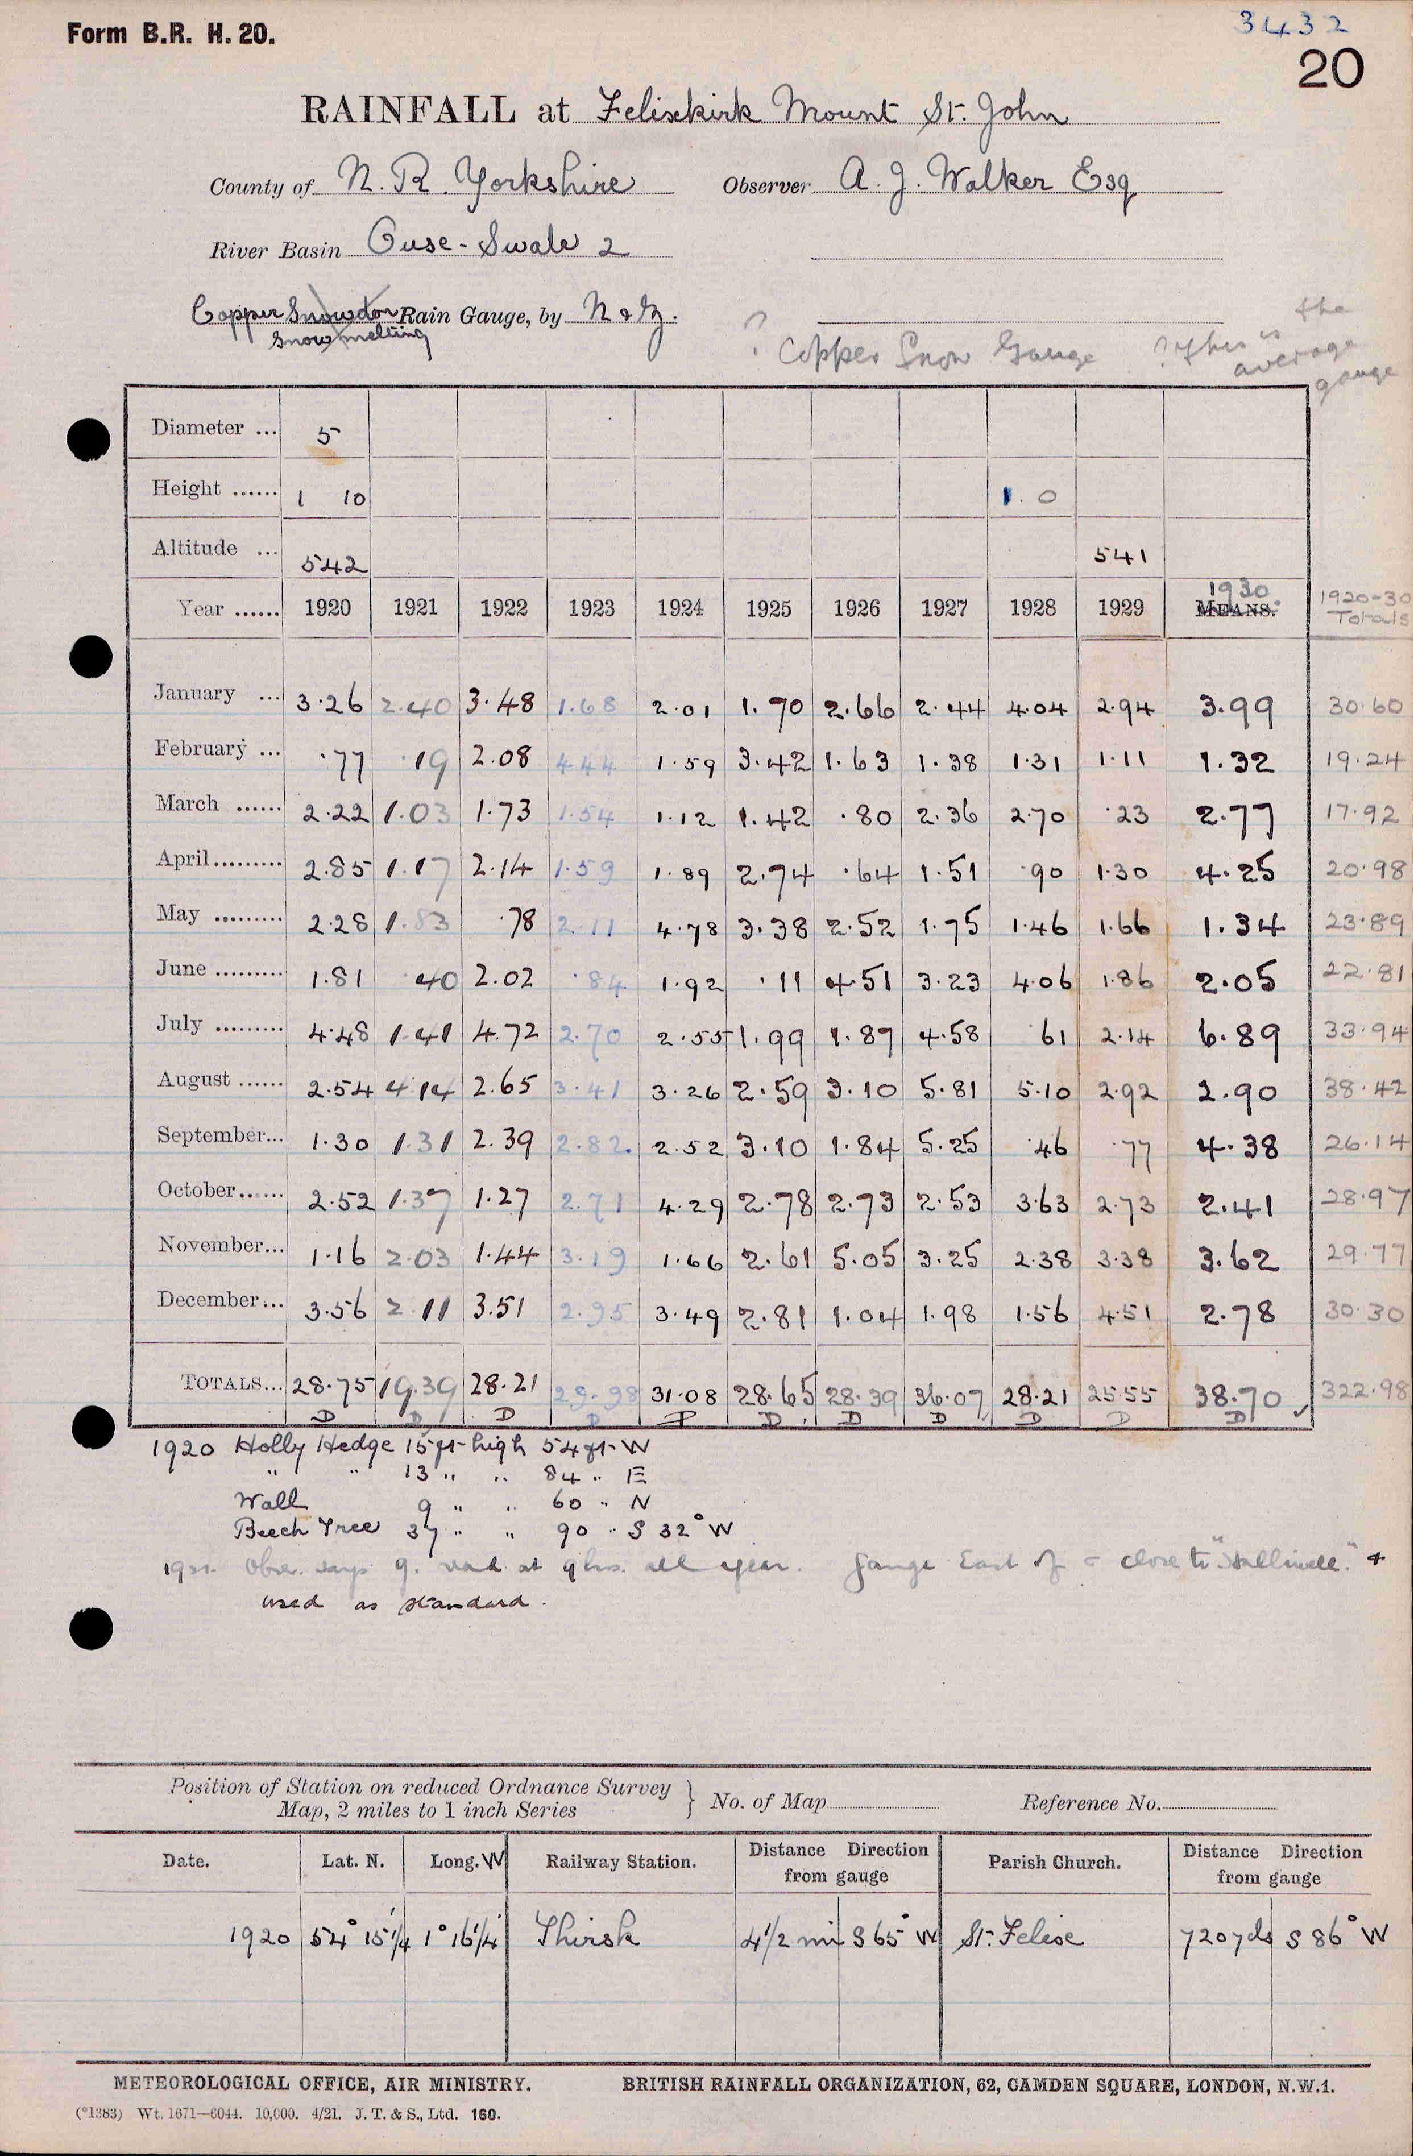 Form B.R. H. 20.
3432
20
RAINFALL at Felixkirk Mount St. John
County of N. R. Yorkshire Observer A. J. Walker Esq
River Basin Ouse - Swale 2
Copper Snowdon Rain Gauge, by N & Z.
Snow melting
? Copper Snow Gauge ? this is the average gauge
Diameter ... 5
Height ...... 1 10 1. 0
Altitude ... 542 541
Year ...... 1920 1921 1922 1923 1924 1925 1926 1927 1928 1929 MEANS. 1930 1920-30 Totals
January ... 3.26 2.40 3.48 1.68 2.01 1.70 2.66 2.44 4.04 2.94 3.99 30.60
February ... .77 .19 2.08 4.44 1.59 3.42 1.63 1.38 1.31 1.11 1.32 19.24
March ...... 2.22 1.03 1.73 1.54 1.12 1.42 .80 2.36 2.70 .23 2.77 17.92
April......... 2.85 1.17 2.14 1.59 1.89 2.74 .64 1.51 .90 1.30 4.25 20.98
May ......... 2.28 1.83 .78 2.11 4.78 3.38 2.52 1.75 1.46 1.66 1.34 23.89
June ......... 1.81 .40 2.02 .84 1.92 .11 4.51 3.23 4.06 1.86 2.05 22.81
July ......... 4.48 1.41 4.72 2.70 2.55 1.99 1.87 4.58 61 2.14 6.89 33.94
August ...... 2.54 4.14 2.65 3.41 3.26 2.59 3.10 5.81 5.10 2.92 2.90 38.42
September... 1.30 1.31 2.39 2.82. 2.52 3.10 1.84 5.25 .46 .77 4.38 26.14
October...... 2.52 1.37 1.27 2.71 4.29 2.78 2.73 2.53 3.63 2.73 2.41 28.97
November... 1.16 2.03 1.44 3.19 1.66 2.61 5.05 3.25 2.38 3.38 3.62 29.77
December... 3.56 2.11 3.51 2.95 3.49 2.81 1.04 1.98 1.56 4.51 2.78 30.30
TOTALS... 28.75 19.39 28.21 29.98 31.08 28.65 28.39 36.07 28.21 25.55 38.70 ✓ 322.98
D D D D P D D D D D D
1920 Holly Hedge 15 ft high 54 ft W
" " 13 " " 84 " E
Wall 9 " " 60 " N
Beech Tree 37 " " 90 " S 32° W
Obsr. says g. read at 9 hrs. all year. Gauge East of & close to &
used as standard.
Position of Station on reduced Ordnance Survey
Map, 2 miles to 1 inch Series } No. of Map Reference No.
Date. Lat. N. Long. W Railway Station. Distance Direction from gauge Parish Church. Distance Direction from gauge
1920 54° 15¼' 1° 16¼' Thirsk 4½ mi S 65° W St. Felix 720 yds S 86° W
METEOROLOGICAL OFFICE, AIR MINISTRY. BRITISH RAINFALL ORGANIZATION, 62, CAMDEN SQUARE, LONDON, N.W.1.
(*1383) Wt. 1671—6044. 10,000. 4/21. J. T. & S., Ltd. 160.